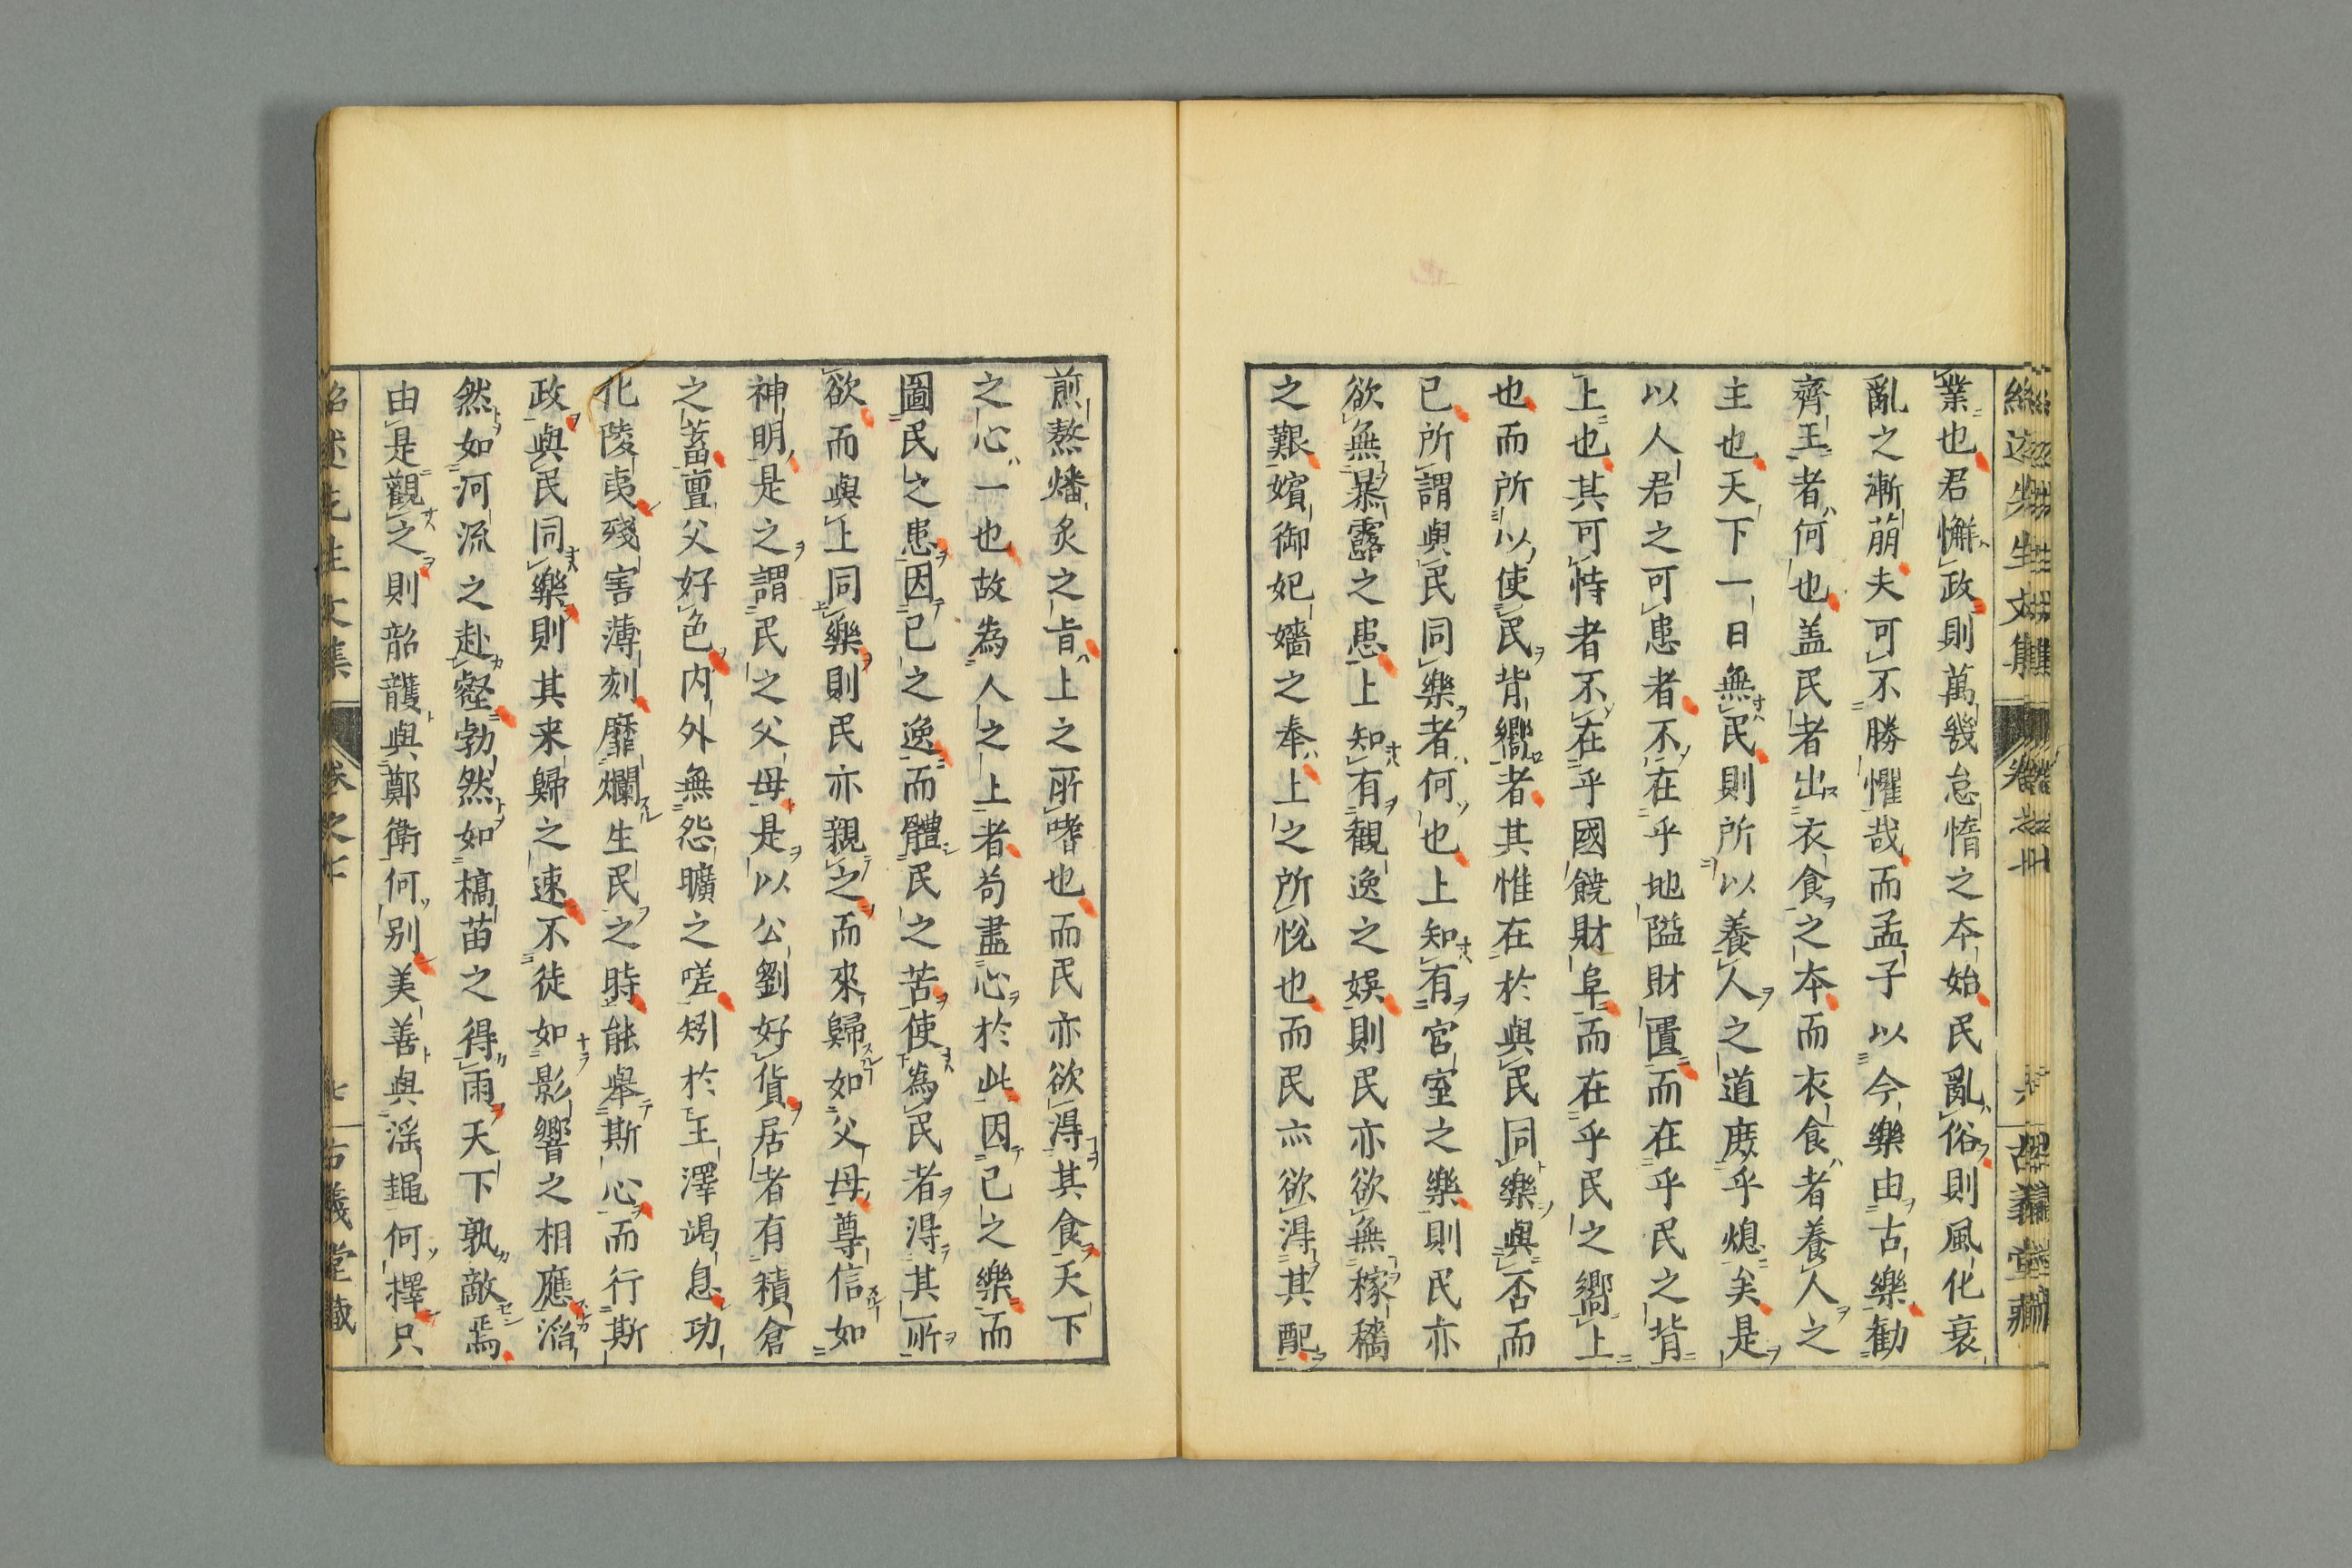 業也君懈政則萬幾怠惰之本始民亂俗則風化衰
亂之漸萠夫可不勝懼哉而孟子以今樂由古樂勸
齊王者何也盖民者出衣食之本而衣食者養人之
主也天下一日無民則所以養人之道廢乎熄矣是
以人君之可患者不在乎地隘財匱而在乎民之背
上也其可恃者不在乎國饒財阜而在乎民之嚮上
也而所以使民背嚮者其惟在於與民同樂與否而
已所謂與民同樂者何也上知有宮室之樂則民亦
欲無暴露之患上知有觀逸之娯則民亦欲無稼穡
之艱嬪御妃嬙之奉上之所悅也而民亦欲得其配
煎熬燔炙之旨上之所嗜也而民亦欲得其食天下
之心一也故為人之上者苟盡心於此因己之樂而
圖民之患因己之逸而體民之苦使為民者得其所
欲而與上同樂則民亦親之而來歸如父母尊信如
神明是之謂民之父母是以公劉好貨居者有積倉
之蓄亶父好色內外無怨曠之嗟矧於王澤竭息功
化陵夷殘害薄刻靡爛生民之時能舉斯心而行斯
政與民同樂則其来歸之速不徒如影響之相應滔
然如河流之赴壑勃然如槁苗之得雨天下孰敵焉
由是觀之則韶頀與鄭衛何別美善與淫䵷何擇只
紹述先生文集
卷之七
七
古義堂藏